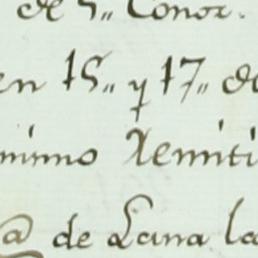 de S,, Conor.
en 15,, y 17,, de
mismo Remiti
@ de Lana la